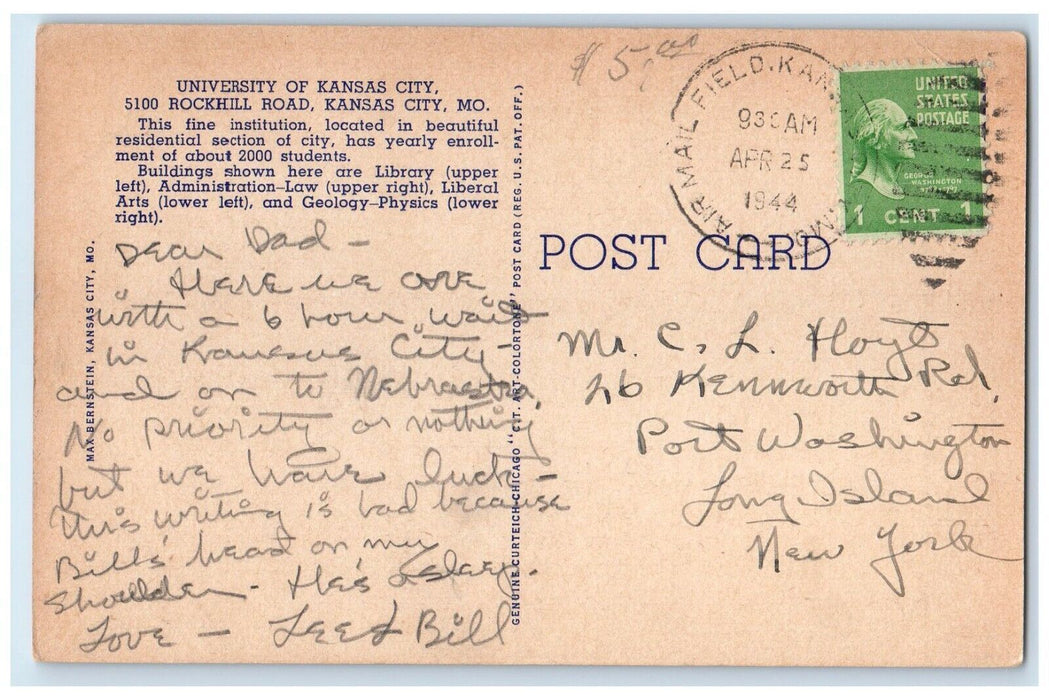 $ 5.00
UNIVERSITY OF KANSAS CITY,
5100 ROCKHILL ROAD, KANSAS CITY, MO.
This fine institution, located in beautiful
residential section of city, has yearly enroll-
ment of about 2000 students.
Buildings shown here are Library (upper
left), Administration-Law (upper right), Liberal
Arts (lower left), and Geology-Physics (lower
right).
Dear Dad -
Here we are
with a 6 hour wait
in Kansas City -
and on to Nebraska.
No priority or nothing
but we have luck -
This writing is bad because
Bill's head on my
shoulder - He's asleep.
Love - Lee & Bill
MAX BERNSTEIN, KANSAS CITY, MO.
GENUINE CURTEICH-CHICAGO "C.T. ART-COLORTONE" POST CARD (REG. U.S. PAT. OFF.)
POST CARD
AIR MAIL FIELD, KAN
930 AM
APR 25
1944
MO.
UNITED
STATES
POSTAGE
GEORGE
WASHINGTON
1 CENT 1
Mr. C. L. Hoyt
26 Kennworth Rd.
Port Washington
Long Island
New York